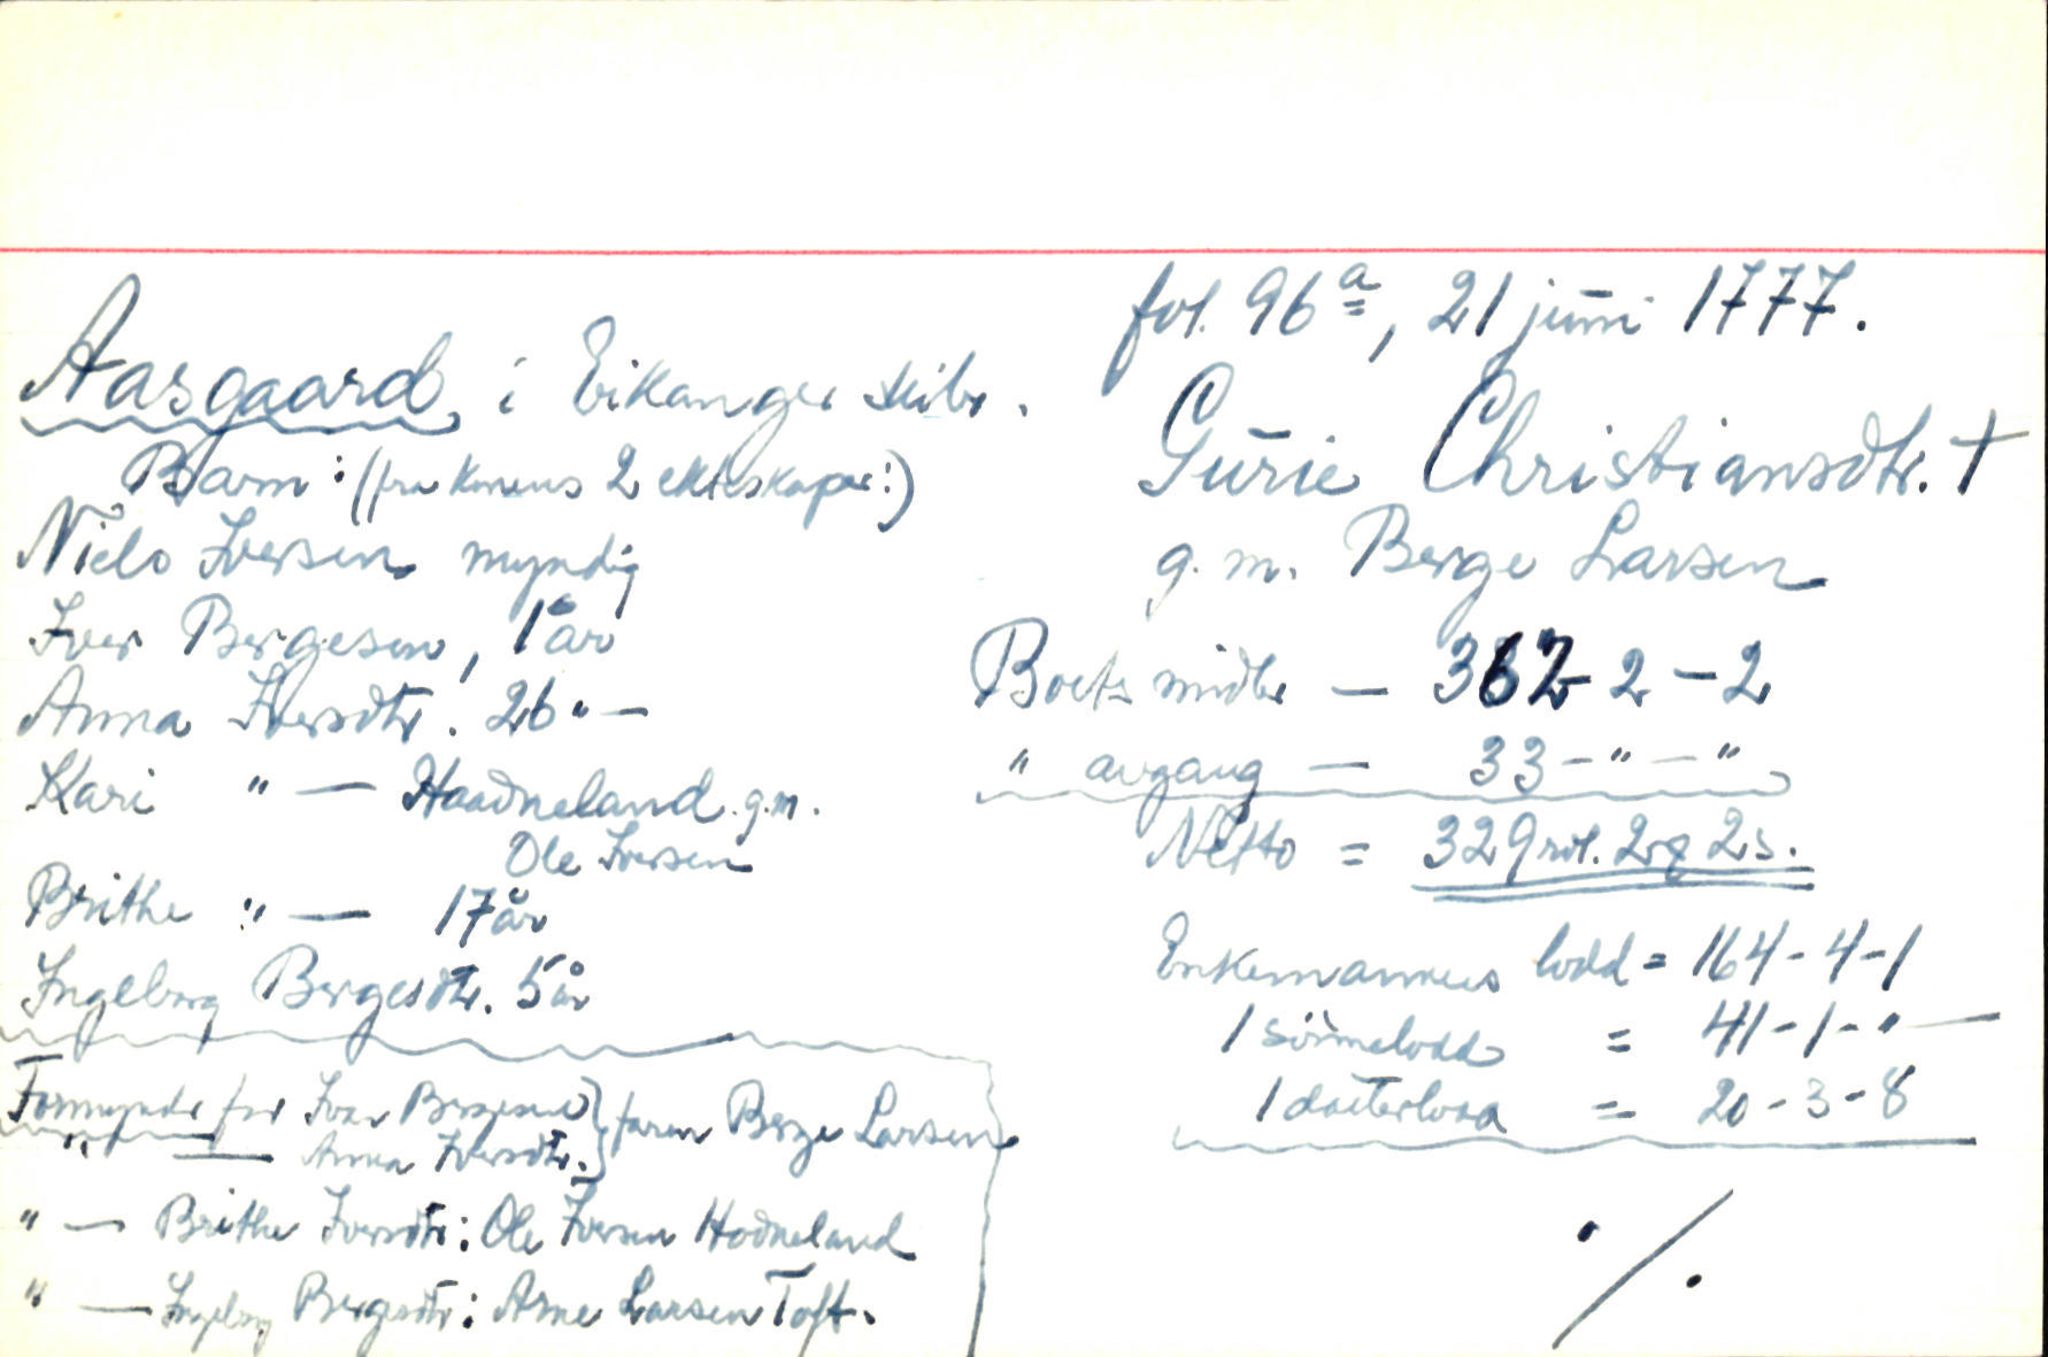 fol. 96a, 21 juni 1777.
Aasgaard i Eikanger skibr.
Gurie Christiansdtr. †
g. m. Berge Larsen
Barn: (fra konens 2 ekteskaper:)
Niels Iversen myndig
Iver Bergesen, 1 år
Anna Iversdtr. 26 " —
Kari " — Haadneland g.m.
Ole Iversen
Brithe " — 17 år
Ingeborg Bergesdtr. 5 år
Boets midler — 362 - 2 - 2
" avgang — 33 - " - "
Netto = 329 rd. 2 2 s.
Enkemannens lodd = 164 - 4 - 1
1 sønnelodd = 41 - 1 - " —
1 datterlodd = 20 - 3 - 8
Formynder for Iver Bergesen } faren Berge Larsen
" — Anna Iversdtr. }
" — Brithe Iversdtr: Ole Iversen Hodneland
" — Ingeborg Bergesdtr: Arne Larsen Toft.
./.